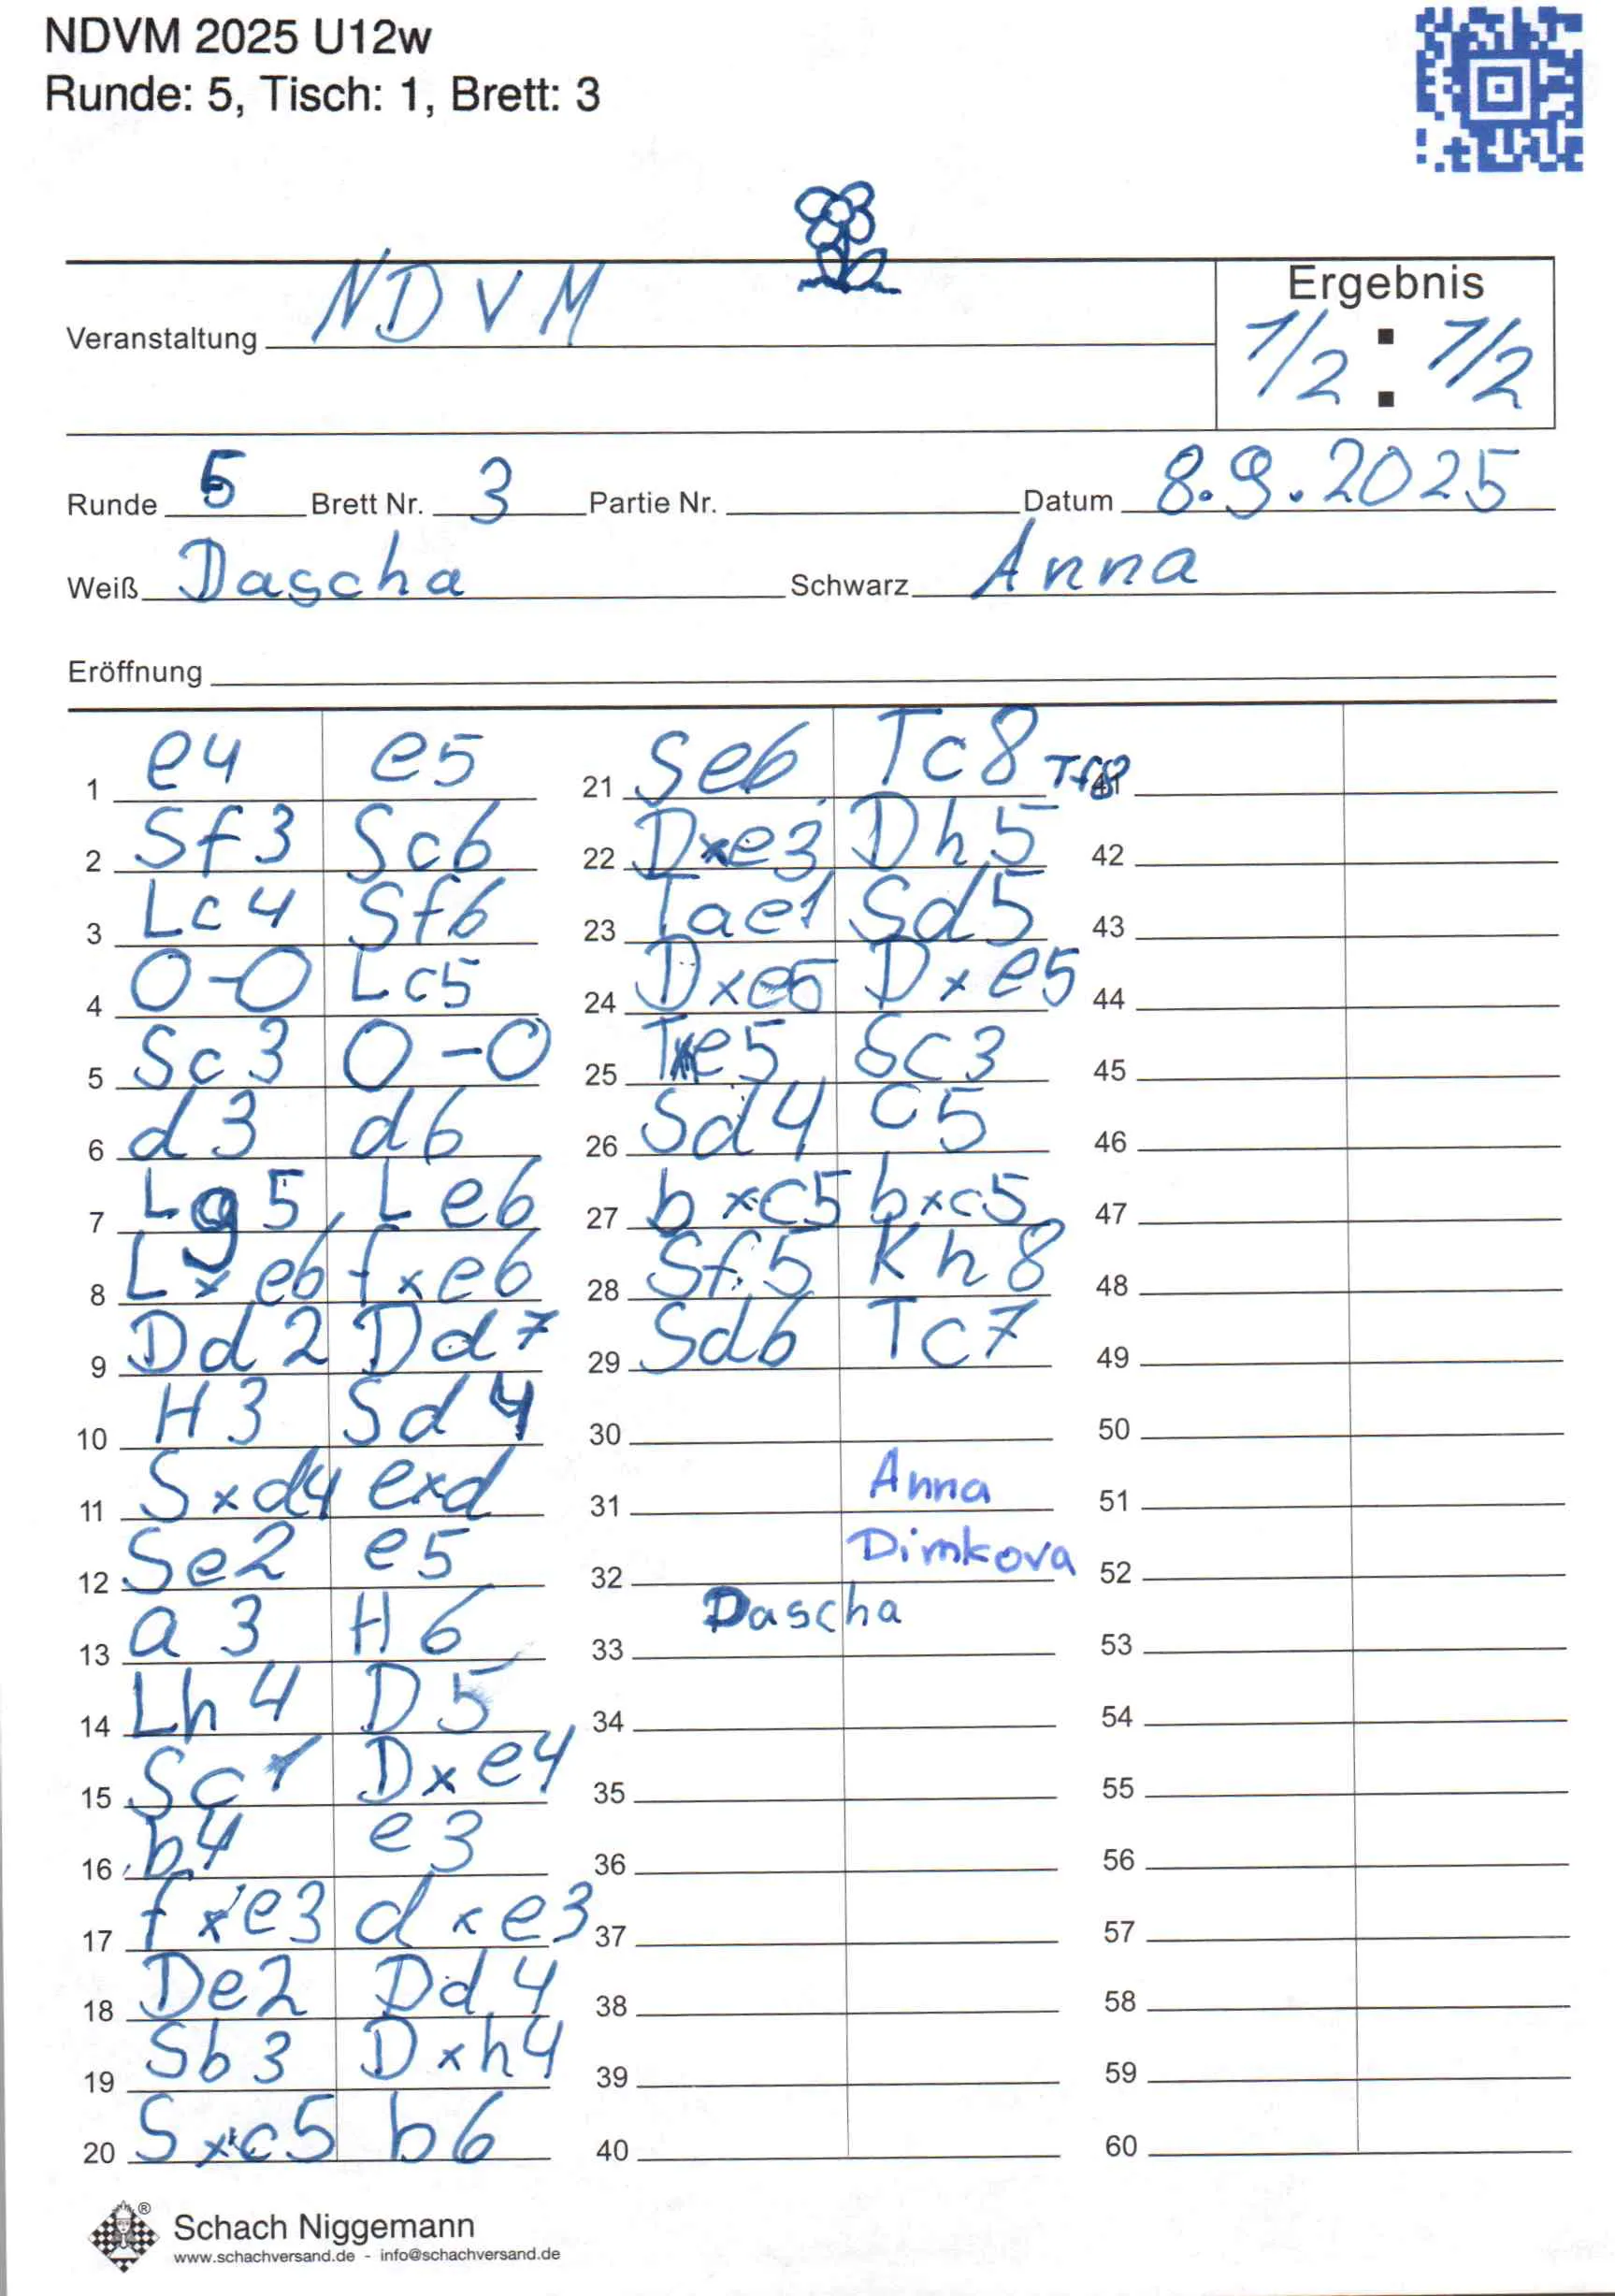 NDVM 2025 U12w
Runde: 5, Tisch: 1, Brett: 3
Veranstaltung NDVM
Ergebnis
1/2 : 1/2
Runde 5 Brett Nr. 3 Partie Nr. Datum 8.9.2025
Weiß Dascha Schwarz Anna
Eröffnung
1 e4 e5
2 Sf3 Sc6
3 Lc4 Sf6
4 O-O Lc5
5 Sc3 O-O
6 d3 d6
7 Lg5 Le6
8 Lxe6 fxe6
9 Dd2 Dd7
10 H3 Sd4
11 Sxd4 exd
12 Se2 e5
13 a3 H6
14 Lh4 D5
15 Sc1 Dxe4
16 b4 e3
17 fxe3 dxe3
18 De2 Dd4
19 Sb3 Dxh4
20 Sxc5 b6
21 Se6 Tc8 Tf8
22 Dxe3 Dh5
23 Tae1 Sd5
24 Dxe5 Dxe5
25 Txe5 Sc3
26 Sd4 c5
27 bxc5 bxc5
28 Sf5 Kh8
29 Sd6 Tc7
30
31 Anna
32 Dimkova
33 Dascha
34
35
36
37
38
39
40
41
42
43
44
45
46
47
48
49
50
51
52
53
54
55
56
57
58
59
60
® Schach Niggemann
www.schachversand.de - info@schachversand.de